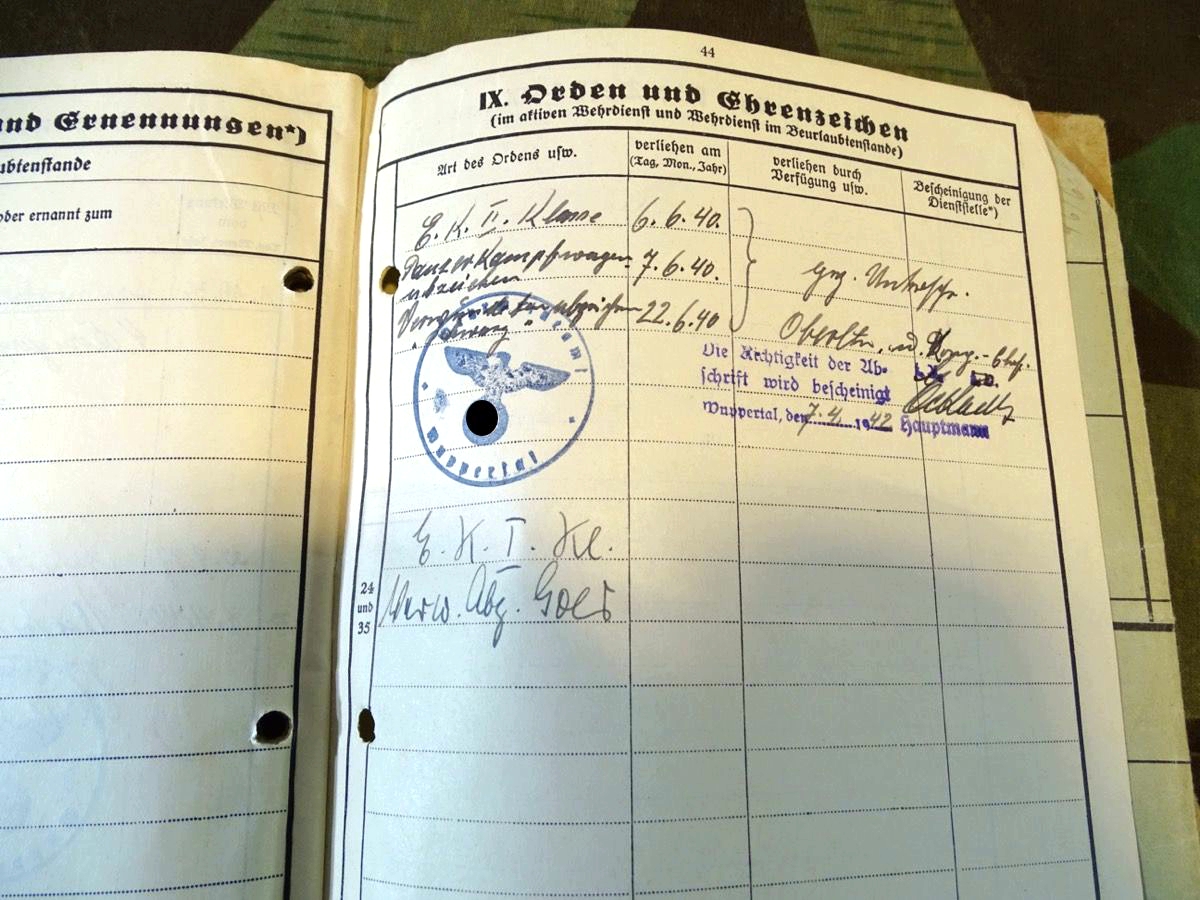 und Ernennungen*)
ubtenstande
oder ernannt zum
44
IX. Orden und Ehrenzeichen
(im aktiven Wehrdienst und Wehrdienst im Beurlaubtenstande)
Art des Ordens usw.
verliehen am
(Tag, Mon., Jahr)
verliehen durch
Verfügung usw.
Bescheinigung der
Dienststelle*)
E. K. II. Klasse 6. 6. 40.
Panzerkampfwagen- 7. 6. 40.
abzeichen
Verwundetenabzeichen 22. 6. 40
"schwarz"
Gez.
Oberltn. u. Komp.-Chef.
Die Richtigkeit der Ab-
schrift wird bescheinigt
Wuppertal, den 7. 4. 1942 Hauptmann
Wuppertal
E. K. I. Kl.
Verw. Abz. Gold
24
und
35